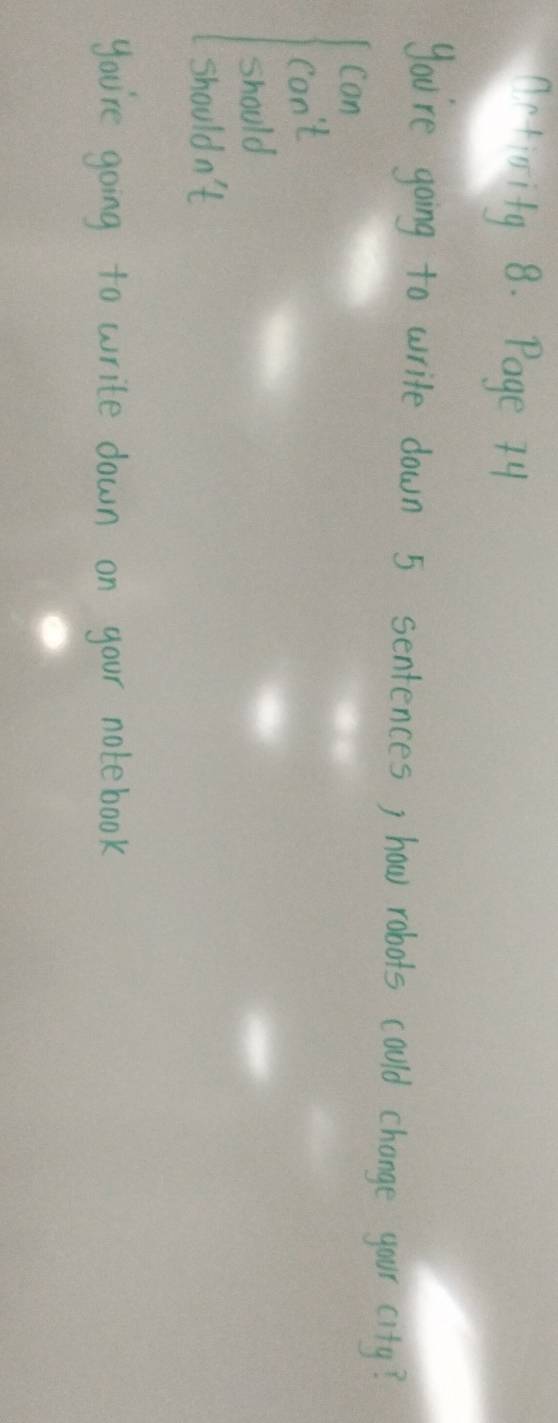 Activity 8. Page 74
You're going to write down 5 sentences, how robots could change your city?
can
can't
should
shouldn't
You're going to write down on your notebook